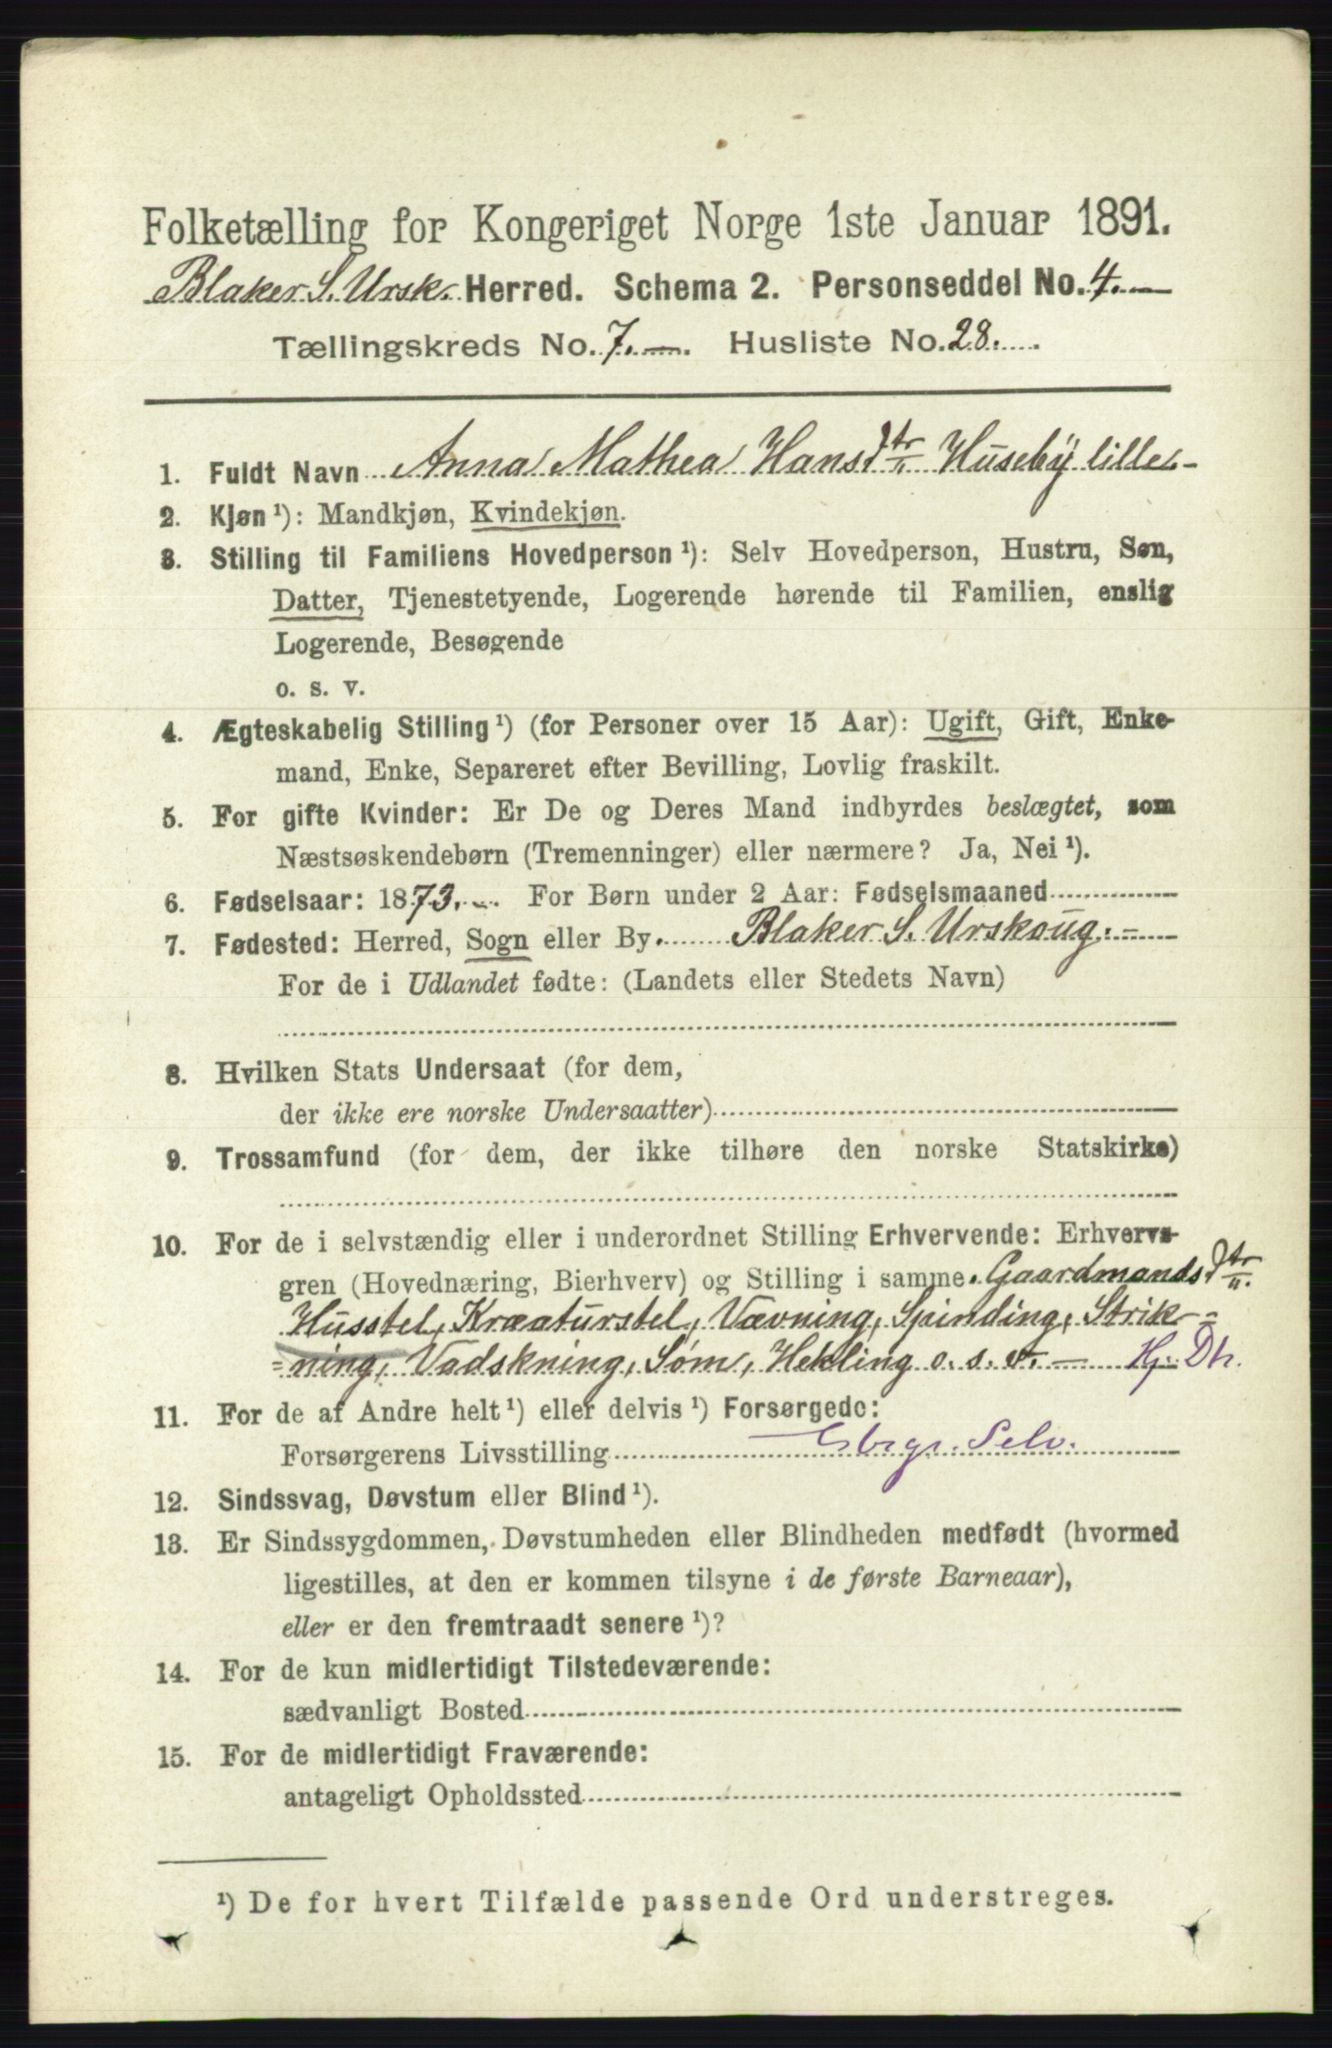 Folketælling for Kongeriget Norge 1ste Januar 1891.
Blaker S. Ursk. Herred. Schema 2. Personseddel No. 4.
Tællingskreds No. 7. Husliste No. 28.
1. Fuldt Navn Anna Mathea Hansdtr Huseby lille
2. Kjøn ¹): Mandkjøn, Kvindekjøn.
3. Stilling til Familiens Hovedperson ¹): Selv Hovedperson, Hustru, Søn,
Datter, Tjenestetyende, Logerende hørende til Familien, enslig
Logerende, Besøgende
o. s. v.
4. Ægteskabelig Stilling ¹) (for Personer over 15 Aar): Ugift, Gift, Enke-
mand, Enke, Separeret efter Bevilling, Lovlig fraskilt.
5. For gifte Kvinder: Er De og Deres Mand indbyrdes beslægtet, som
Næstsøskendebørn (Tremenninger) eller nærmere? Ja, Nei ¹).
6. Fødselsaar: 1873. For Børn under 2 Aar: Fødselsmaaned
7. Fødested: Herred, Sogn eller By. Blaker S. Urskoug.
For de i Udlandet fødte: (Landets eller Stedets Navn)
8. Hvilken Stats Undersaat (for dem,
der ikke ere norske Undersaatter)
9. Trossamfund (for dem, der ikke tilhøre den norske Statskirke)
10. For de i selvstændig eller i underordnet Stilling Erhvervende: Erhvervs-
gren (Hovednæring, Bierhverv) og Stilling i samme. Gaardmandsdtr
Husstel, Kræaturstel, Vævning, Spinding, Strik-
ning, Vadskning, Søm, Hekling o. s. v. Hj. Dtr.
11. For de af Andre helt ¹) eller delvis ¹) Forsørgede:
Forsørgerens Livsstilling Gbrgr. Selv.
12. Sindssvag, Døvstum eller Blind ¹).
13. Er Sindssygdommen, Døvstumheden eller Blindheden medfødt (hvormed
ligestilles, at den er kommen tilsyne i de første Barneaar),
eller er den fremtraadt senere ¹)?
14. For de kun midlertidigt Tilstedeværende:
sædvanligt Bosted
15. For de midlertidigt Fraværende:
antageligt Opholdssted
¹) De for hvert Tilfælde passende Ord understreges.